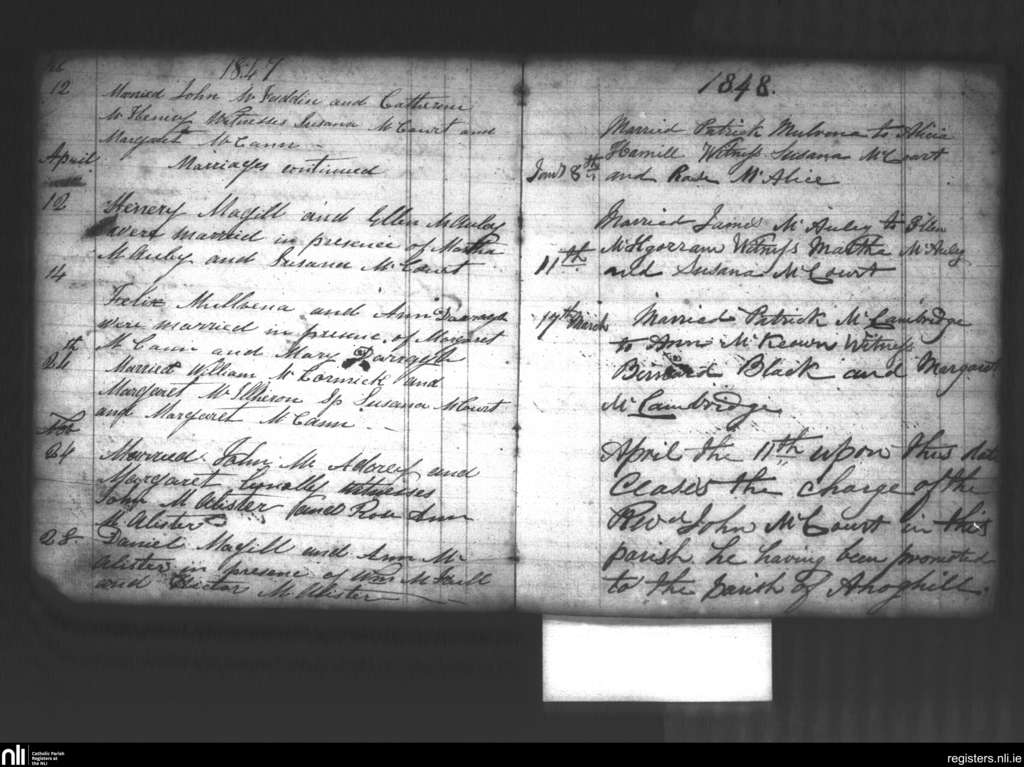 1847
12 Married John McFuddin and Catherine
McHenry Witnesses Susana McCourt and
Margaret McCann
April Marriages continued
12 Henery Magill and Ellen McAuley
were married in presence of Martha
McAuley and Susana McCourt
14
Felix Mulhena and Ann Darragh
were married in presence of Margaret
McCann and Mary Darragh
24th Married William McCormick and
Margaret McIlheron Sp Susana McCourt
and Margaret McCann
24 Married John McAdorey and
Margaret witnesses
John McAlister and Rose Ann
McAlister
28 Daniel Magill and Ann Mc
Alister in presence of Wm McNeill
and McAlister
1848.
Married Patrick Mulvona to Alicia
Hamill Witness Susana McCourt
Jany 8th and Rose McAlice
Married James McAuley to Ellen
McIlgorram Witness Martha McAuley
11th and Susana McCourt
17th March Married Patrick McCambridge
to Ann McKeown Witness
Bernard Black and Margaret
McCambridge
April the 11th upon this date
Ceases the charge of the
Revd John McCourt in this
parish he having been promoted
to the parish of Ahoghill.
nli
Catholic Parish
Registers at
the NLI
registers.nli.ie